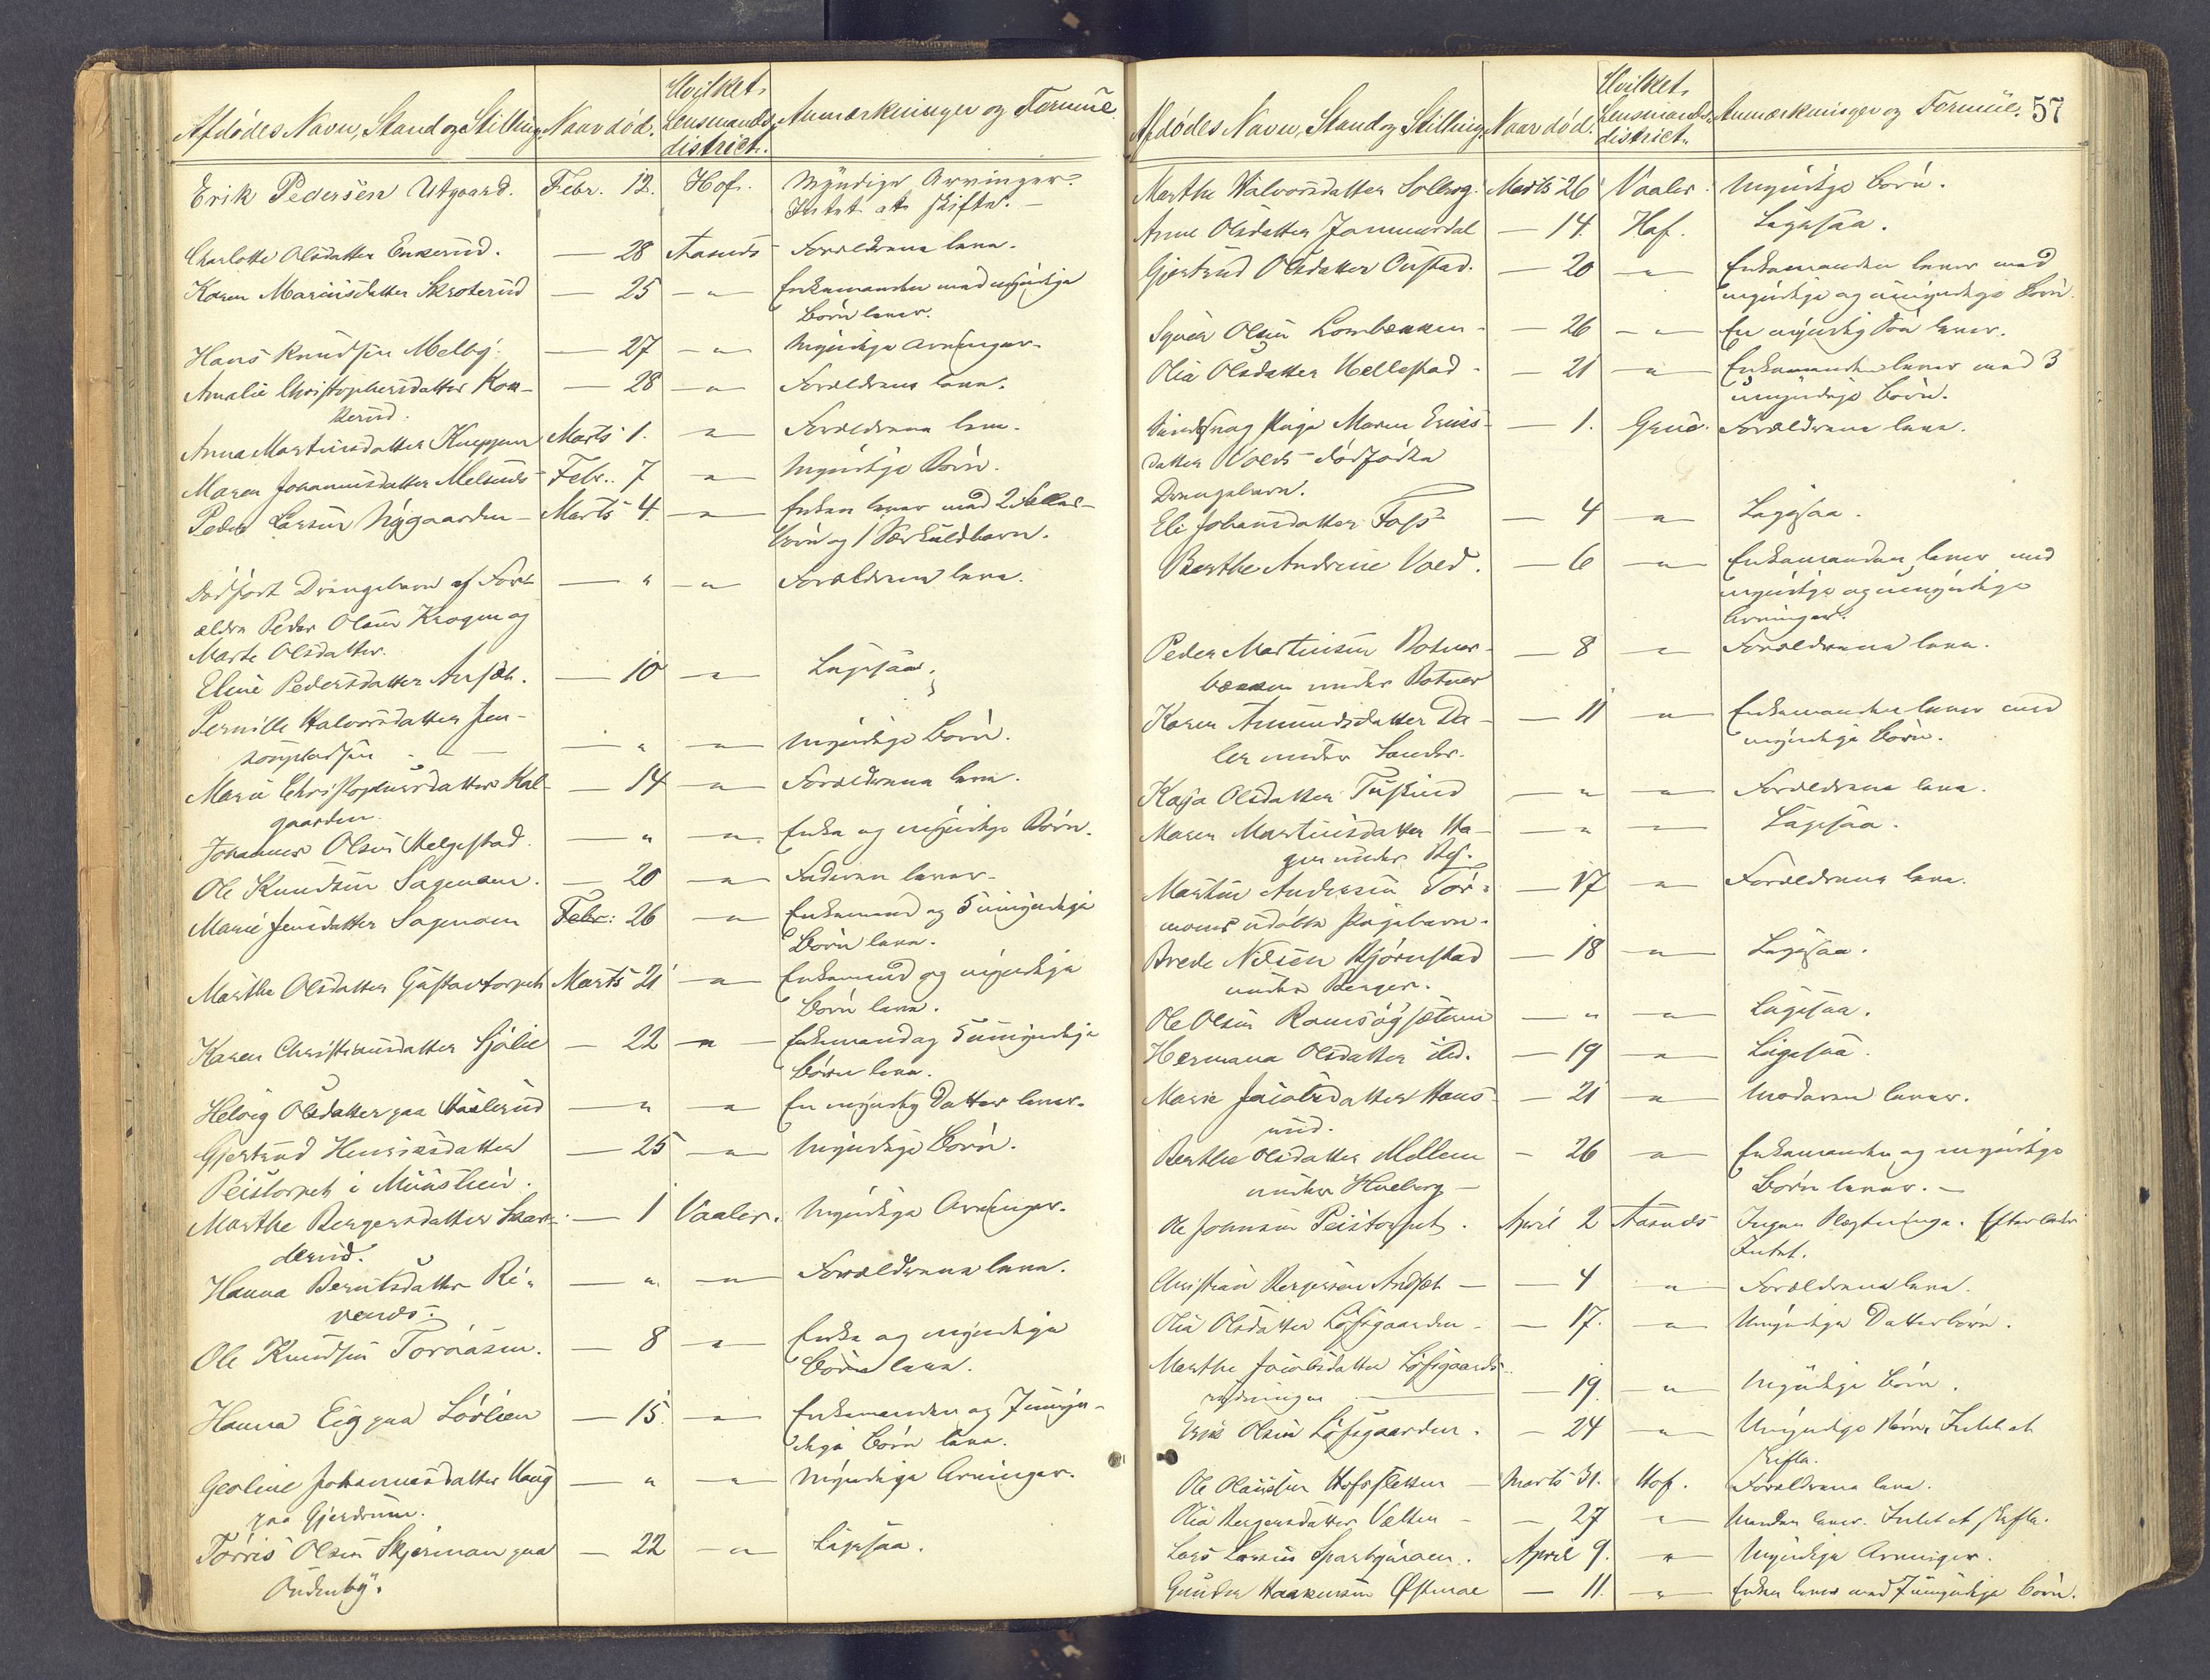 Afdödes Navn, Stand og Stilling. Naar död. Hvilket Lensmands- district. Anmærkninger og Formue.
Erik Pedersen Utgaard. Febr. 12. Hof. Myndige Arvinger.
Intet at skifte. —
Charlotte Olsdatter Enkerud. — 28 Aasnæs Forældrene leve.
Karen Mariusdatter Skroterud — 25 — " — Enkemanden med myndige
Börn lever.
Hans Knudsen Melby. — 27 — " — Myndige Arvinger.
Amalie Christophersdatter Kon- — 28 — " — Forældrene leve.
kerud.
Anna Martinsdatter Kneppen Marts 1. — " — Forældrene leve.
Maren Johannesdatter Melnæs Febr. 7 — " — Myndige Börn.
Peder Larsen Nygaarden — Marts 4. — " — Enken lever med 2 Fælles-
börn og 1 Særkuldbarn.
Dödfödt Drengebarn af For- — " — " — Forældrene leve.
ældre Peder Olsen Krogen og
Marte Olsdatter.
Eline Pedersdatter Arnset. — 10 — " — Ligesaa.
Pernille Halvorsdatter Jen-
sönpladsen — — " — " — Myndige Börn.
Marie Christophersdatter Kal- — 14 — " — Forældrene leve.
gaarden.
Johannes Olsen Melgestad. — " — " — Enke og myndige Börn.
Ole Knudsen Sagmoen. — 20 — " — Faderen lever.
Marie Jensdatter Sagmoen Febr: 26 — " — Enkemand og 5 umyndige
Börn leve.
Marthe Olsdatter Gustavtorpet Marts 21 — " — Enkemand og myndige
Börn leve.
Karen Christiansdatter Sjölie — 22 — " — Enkemand og 5 umyndige
Börn leve.
Helvig Olsdatter paa Haslerud — " — " — En myndig Datter lever.
Gjertrud Henriksdatter — 25 — " — Myndige Börn.
Peistorpet i Münslien.
Marthe Bergersdatter Skar- — 1 Vaaler. Myndige Arvinger.
derud.
Hanna Berntsdatter Re- — " — " — Forældrene leve.
venæs.
Ole Knudsen Toraasen. — 8 — " — Enke og myndige
Börn leve.
Hanna Eig paa Lövlien — 15. — " — Enkemanden og 7 umyn-
dige Börn leve.
Geoline Johannesdatter Haug — " — " — Myndige Arvinger.
paa Gjerdrum.
Torris Olsen Skjerman paa — 22 — " — Ligesaa.
Oudenby.
Afdödes Navn, Stand og Stilling. Naar död. Hvilket Lensmands- district. Anmærkninger og Formue. 57
Marthe Halvorsdatter Solberg. Marts 26 Vaaler. Myndige Börn.
Anne Olsdatter Jammerdal — 14. Hof. Ligesaa.
Gjertrud Olsdatter Oustad. — 20 — " — Enkemanden lever med
myndige og umyndige Börn.
Syver Olsen Lombækken — 26 — " — En myndig Sön lever.
Olia Olsdatter Hellestad — 21 — " — Enkemanden lever med 3
umyndige Börn.
Maren Eriks- — 1. Grue. Forældrene leve.
datter Volds dödfödte
Drengebarn.
Eli Johansdatter Foss — 4 — " — Ligesaa.
Berthe Andrine Vold. — 6 — " — Enkemanden lever med
myndige og umyndige
Arvinger.
Peder Martinsen Rotner- — 8 — " — Forældrene leve.
bækken under Rotner
Karen Amundsdatter Da- — 11 — " — Enkemanden lever med
len under Sander. myndige Börn.
Kaja Olsdatter Tuskind — " — " — Forældrene leve.
Maren Martinsdatter Ha- — " — " — Ligesaa.
gen under
Martin Andersen Tor- — 17 — " — Forældrene leve.
moens udöbte Pigebarn.
Brede Nilsen Bjørnstad — 18 — " — Ligesaa.
under Berger.
Ole Olsen Ramsögsæteren — " — " — Ligesaa.
Hermana Olsdatter ibd. — 19 — " — Ligesaa.
Marie Jacobsdatter Haus- — 21 — " — Moderen lever.
rud.
Berthe Olsdatter Mellem — 26 — " — Enkemanden og myndige
under Hueberg — Börn lever. —
Ole Johnsen Peistorpet. April 2 Aasnæs Ingen Slægtninge. Efterlader
Intet.
Christian Bergersen Andset — — 4 — " — Forældrene leve.
Olia Olsdatter Löfsgaarden — — 17. — " — Umyndige Datterbörn.
Marthe Jacobsdatter Löfsgaards-
rydningen — — 19. — " — Myndige Börn.
Eriks Olsen Löfsgaarden. — 24 — " — Umyndige Börn. Intet at
skifte.
Ole Olaussen Hofsfletten — Marts 31. Hof. Forældrene leve.
Olia Bergersdatter Velten — — 27 — " — Manden lever. Intet at skifte.
Lars Larsen Sparbyroen. April 9. — " — Myndige Arvinger.
Gunder Haakensen Østmoe — 11. — " — Enken lever med 7 umyndige Börn.